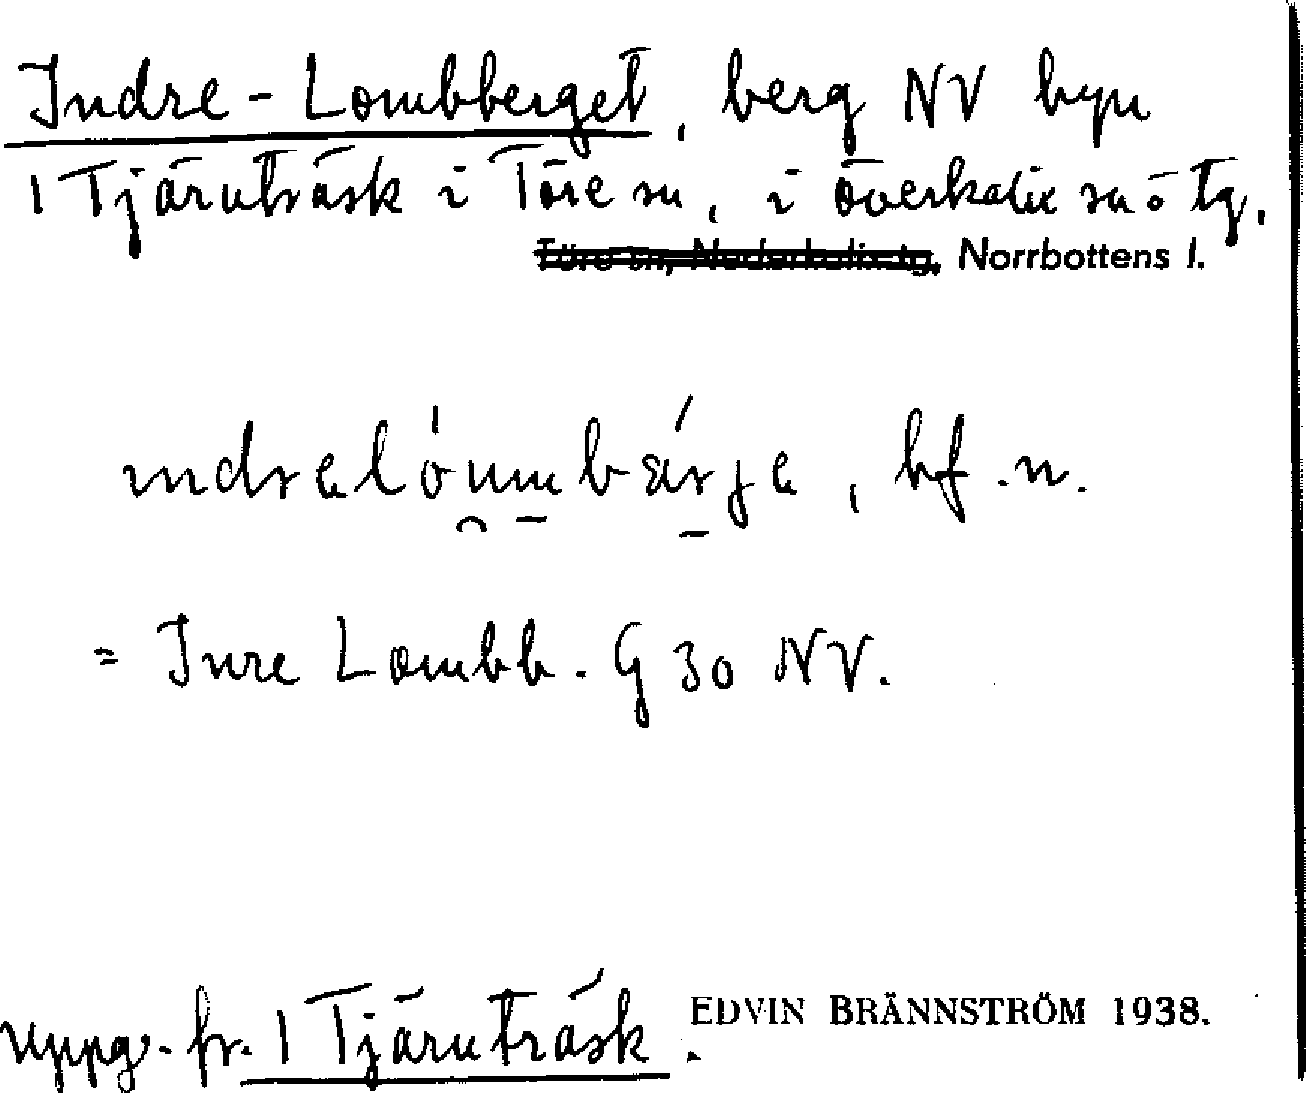 Indre-Lombberget, berg NV byn
1 Tjäruträsk i Töre sn, i Överkalix sn o tg.
Töre sn, Nederkalix tg, Norrbottens l.
, bf. n.
= Inre Lombb. G 30 NV.
uppg. fr. 1 Tjäruträsk.
EDVIN BRÄNNSTRÖM 1938.